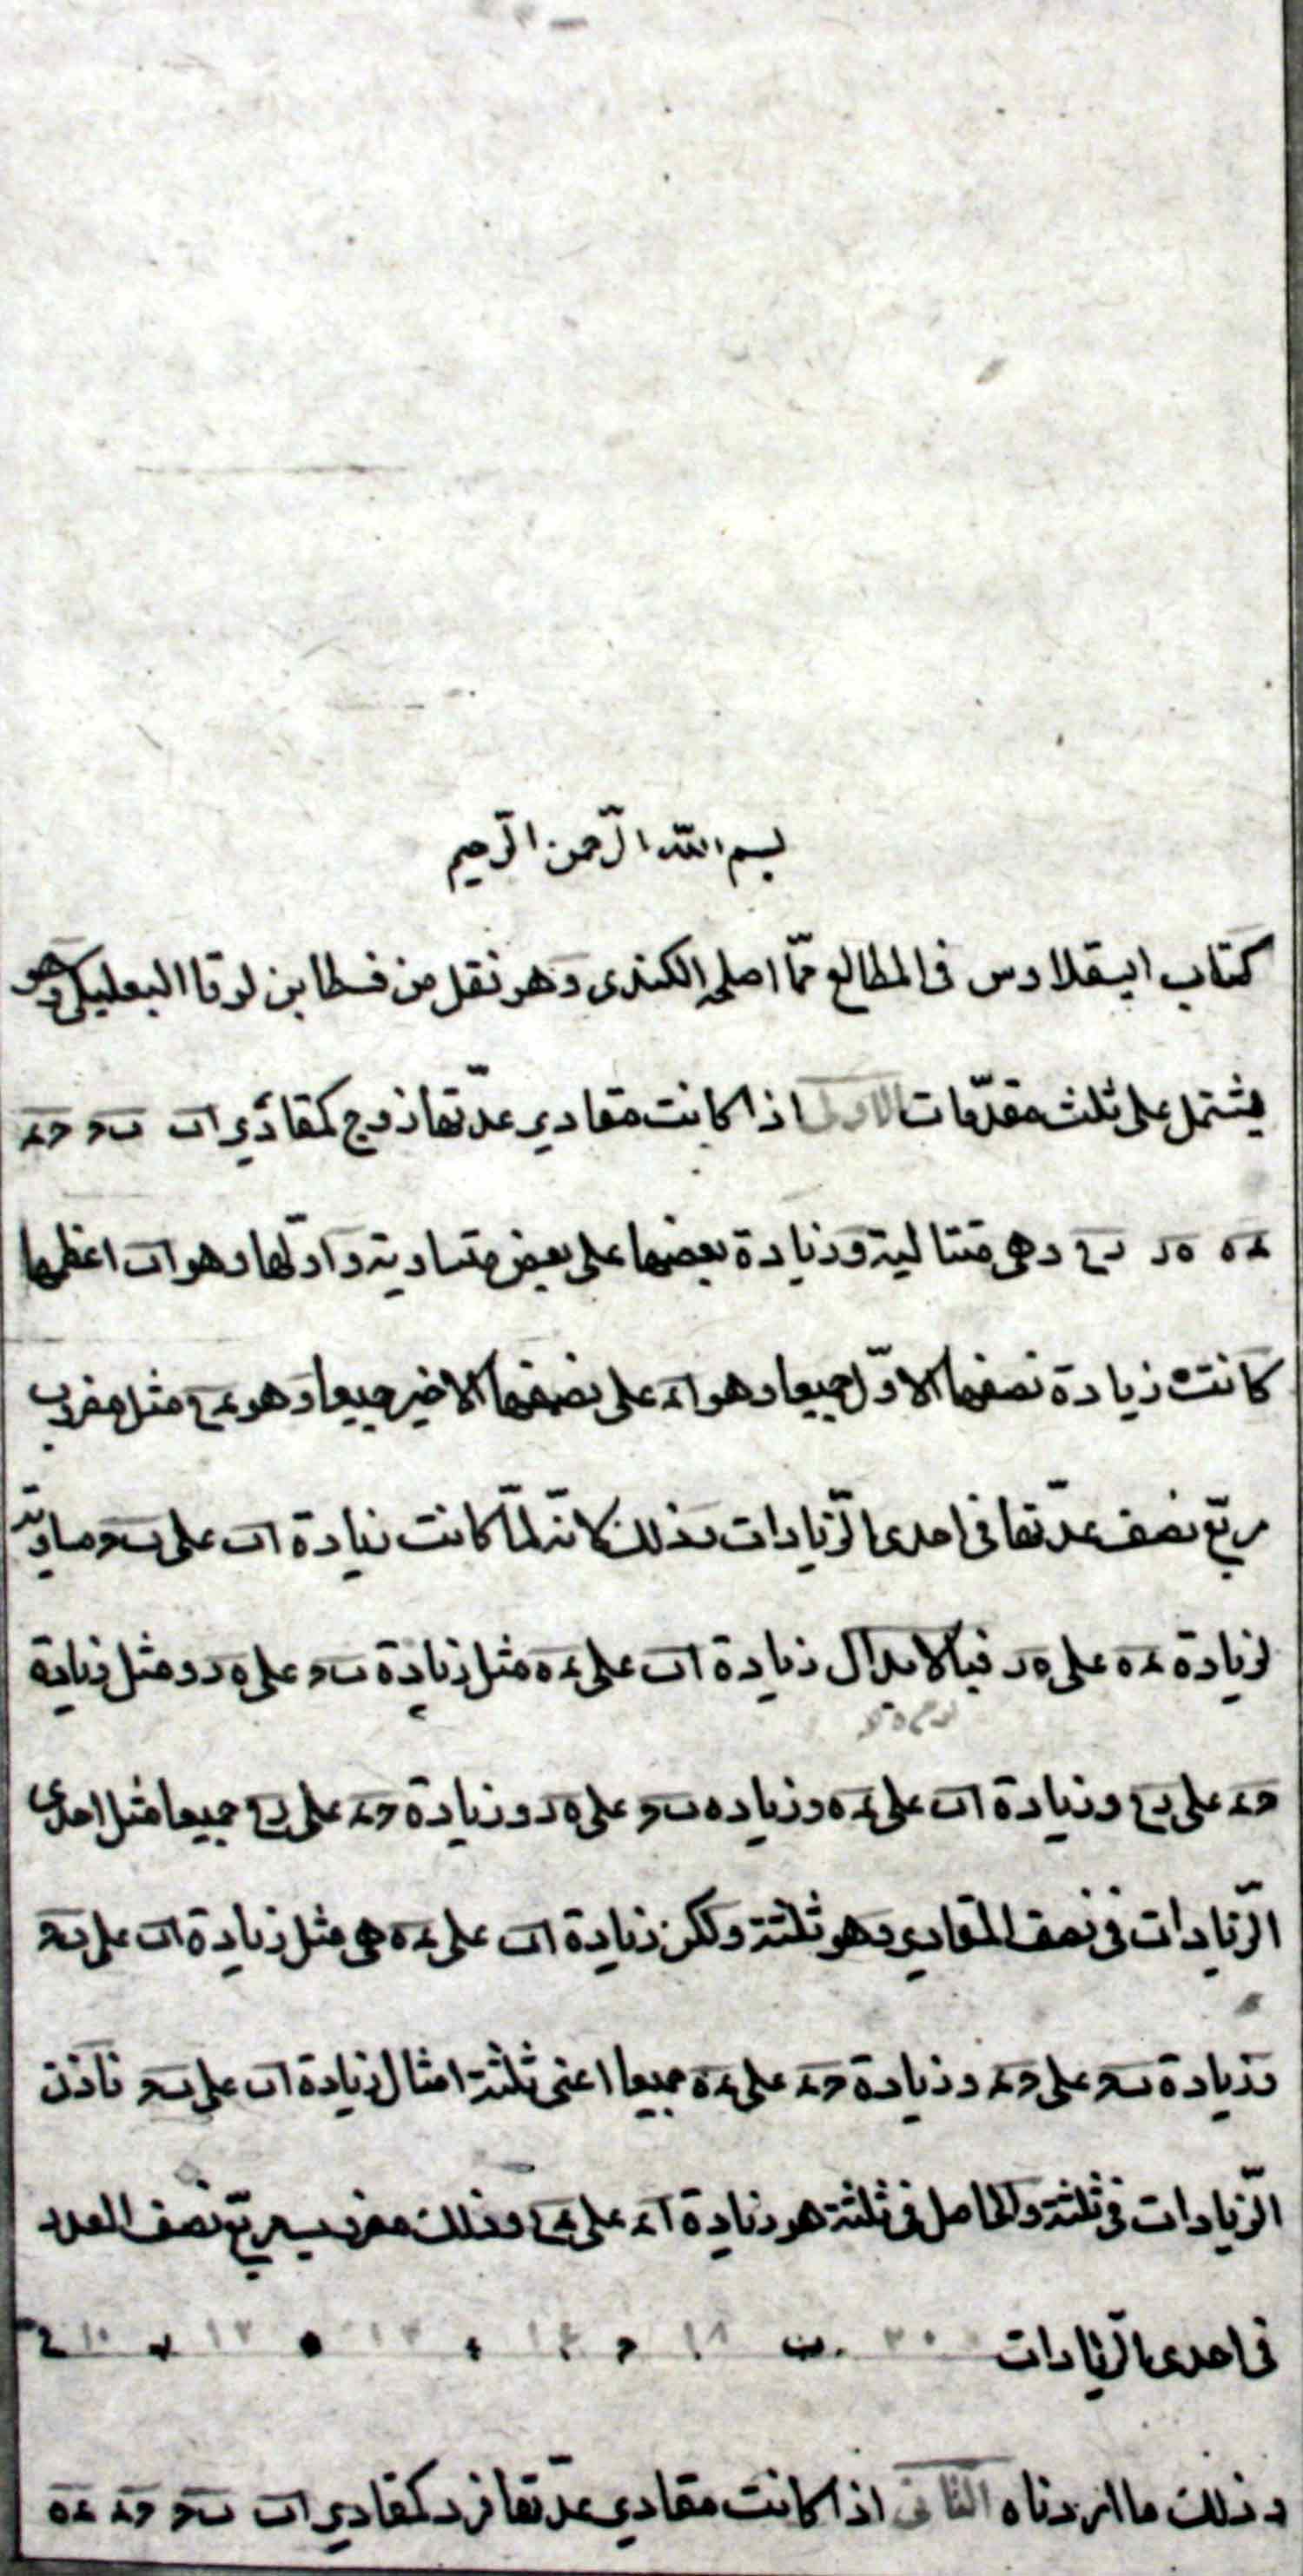 بسم الله الرّحمن الرّحيم
كتاب ابسقلاوس فى المطالع ممّا اصلحه الكندى وهو نقل من قسطا بن لوقا البعلبكى وهو
يشتمل على ثلث مقدّمات الاولى اذا كانت مقادير عدّتها زوج كمقادير اب بج جد
ده هر رح وهى متتالية وزيادة بعضها على بعض متساوية واوّلها وهو اب اعظمها
كانت زيادة نصفها الاوّل جميعا وهو اد على نصفها الاخير جميعا وهو دح مثل مضروب
مربّع نصف عدّتها فى احدى الزّيادات وذلك لانّه لمّا كانت زيادة اب على بج مساوية
لزيادة ده على هر فبالابدال زيادة اب على ده مثل زيادة بج على هر ومثل زيادة
جد على رح وزيادة اب على ده وزياده بج على هر وزيادة جد على رح جميعا مثل احدى
الزّيادات فى نصف المقادير وهو ثلثة ولكن زيادة اب على ده هى مثل زيادة اب على بج
وزيادة بج على جد وزيادة جد على ده جميعا اعنى ثلثة امثال زيادة اب على بج فاذن
الزّيادات فى ثلثة والحاصل فى ثلثة هو زيادة اد على دح وذلك مضروب مربّع نصف العدد
فى احدى الزّيادات ٢٠ ب ١٨ ج ١٦ د ١٤ ه ١٢ ر ١٠ ح
وذلك ما اردناه الثانى اذا كانت مقادير عدّتها فرد كمقادير اب بج جد ده